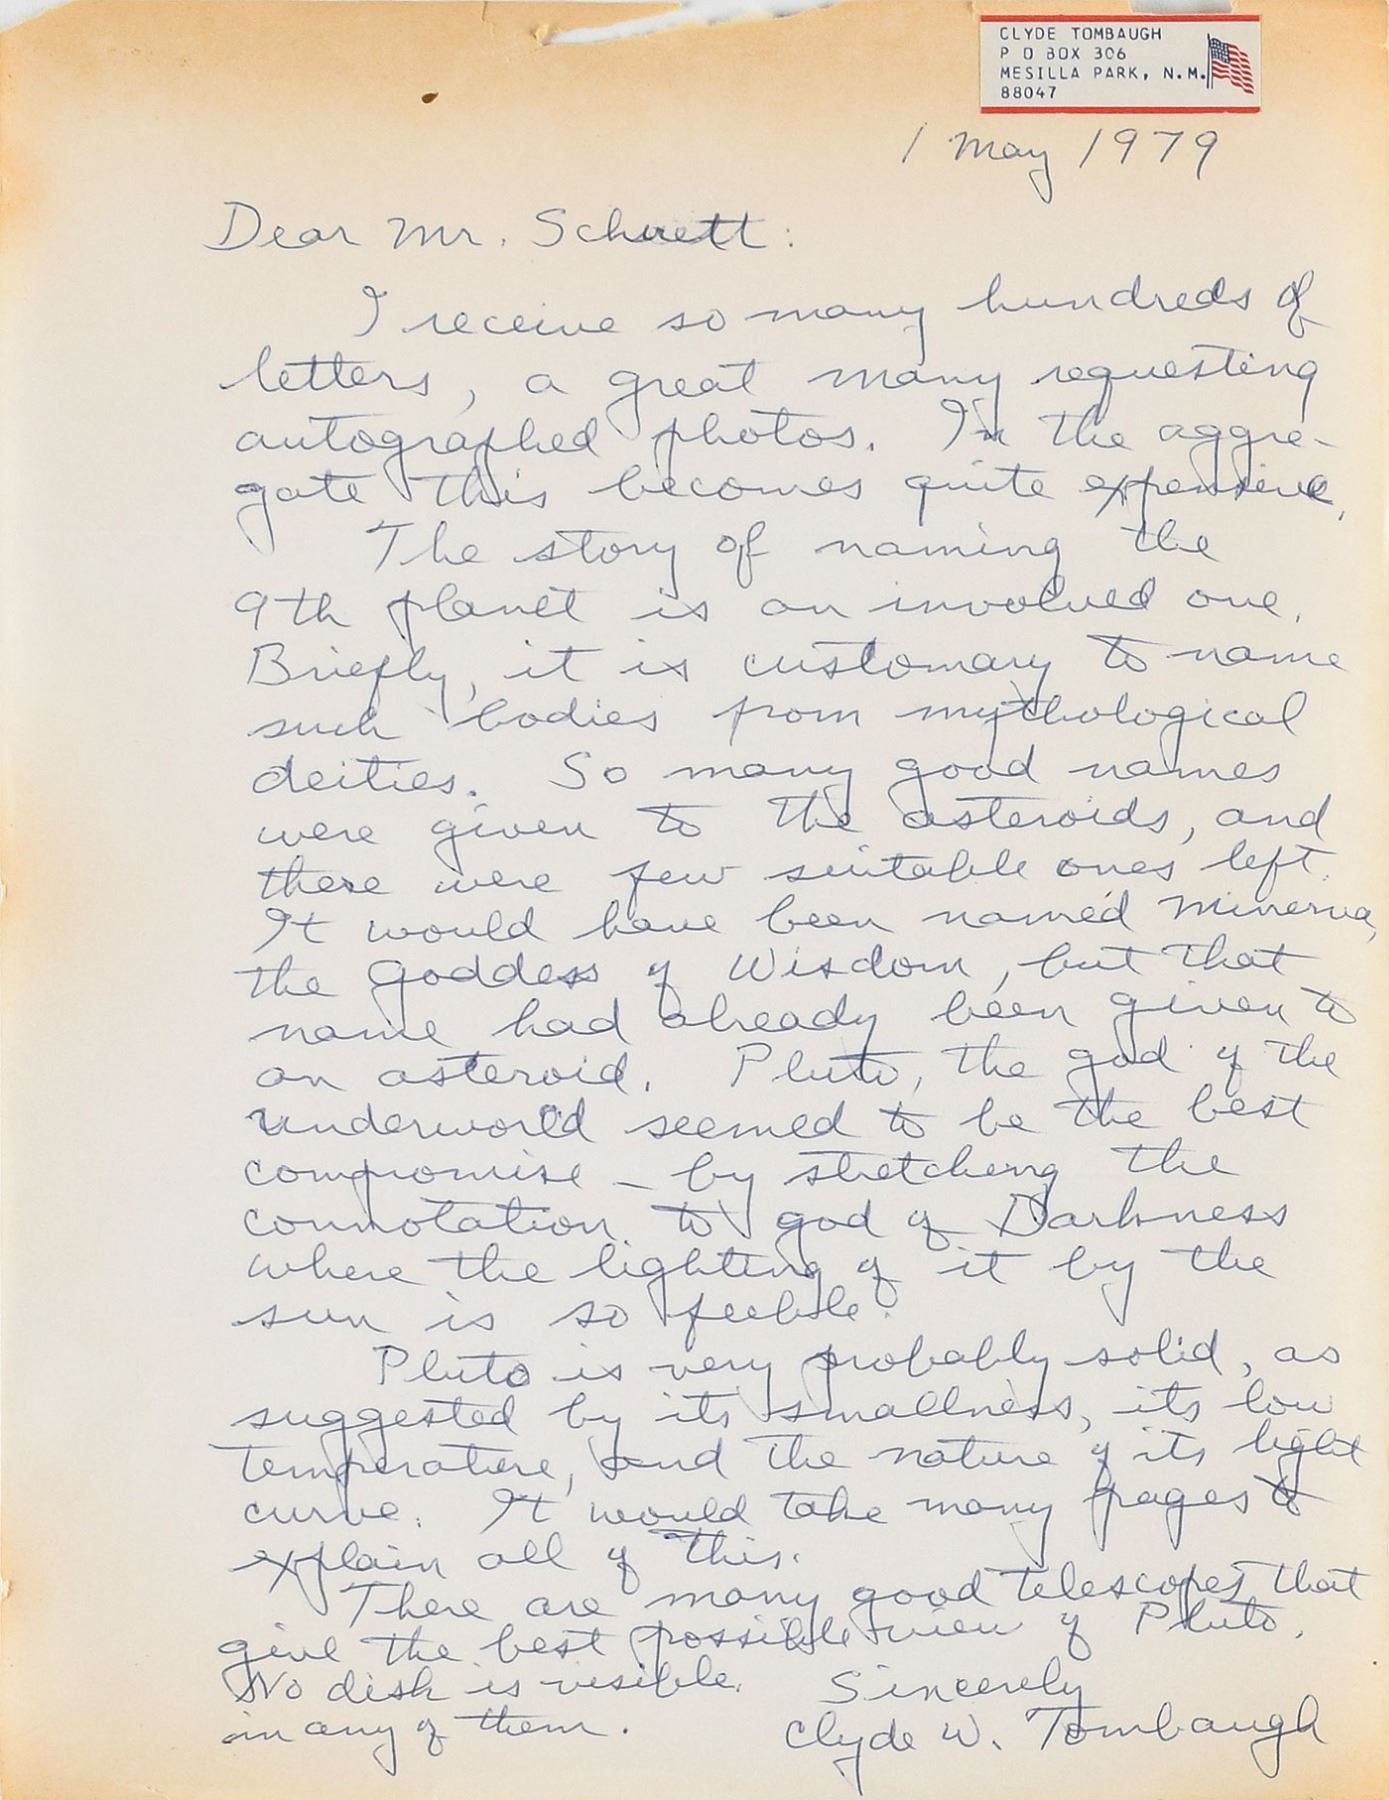 CLYDE TOMBAUGH
P O BOX 306
MESILLA PARK, N.M.
88047
1 May 1979
Dear Mr. Schuett:
I receive so many hundreds of
letters, a great many requesting
autographed photos. In the aggre-
gate this becomes quite expensive.
The story of naming the
9th planet is an involved one.
Briefly, it is customary to name
such bodies from mythological
deities. So many good names
were given to the asteroids, and
there were few suitable ones left.
It would have been named Minerva,
the Goddess of Wisdom, but that
name had already been given to
an asteroid. Pluto, the god of the
underworld seemed to be the best
compromise – by stretching the
connotation to god of Darkness
where the lighting of it by the
sun is so feeble.
Pluto is very probably solid, as
suggested by its smallness, its low
temperature, and the nature of its light
curve. It would take many pages to
explain all of this.
There are many good telescopes that
give the best possible view of Pluto.
No disk is visible
in any of them.
Sincerely
Clyde W. Tombaugh